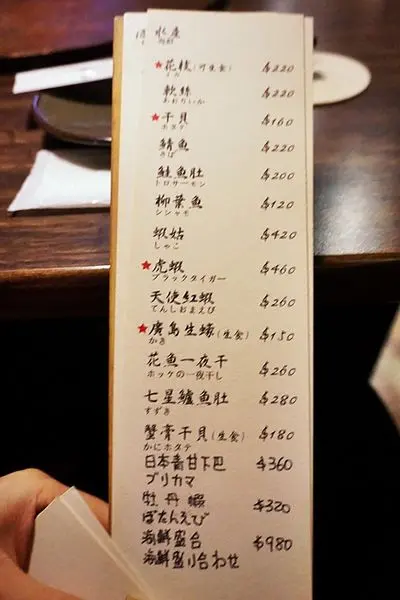 水産
★花枝(可生食) $220
いか
軟絲 $220
あおりいか
★干貝 $160
ホタテ
鯖魚 $220
さば
鮭魚肚 $200
トロサーモン
柳葉魚 $120
シシャモ
蝦姑 $420
しゃこ
★虎蝦 $460
ブラックタイガー
天使紅蝦 $260
てんしあまえび
★廣島生蠔(生食) $150
かき
花魚一夜干 $260
ホッケの一夜干し
七星鱸魚肚 $280
すずき
蟹膏干貝(生食) $180
かにホタテ
日本青甘下巴 $360
ブリカマ
牡丹蝦 $320
ぼたんえび
海鮮盛合 $980
海鮮盛り合わせ